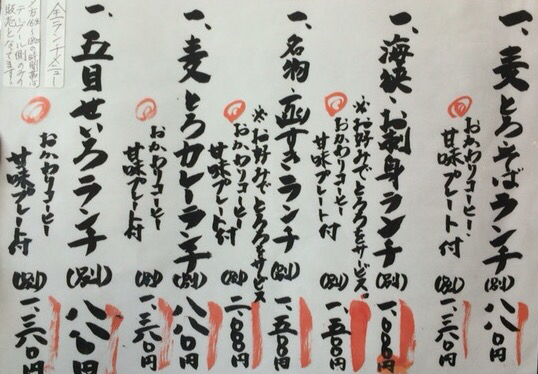 一、麦とろそばランチ(別)八八〇円
おかわりコーヒー、
甘味プレート付(別)一、三八〇円
一、海峡・お刺身ランチ(別)一、〇〇〇円
※お好みでとろろをサービス。
おかわりコーヒー
甘味プレート付(別)一、五〇〇円
一、名物・ランチ(別)一、五〇〇円
※お好みでとろろをサービス
おかわりコーヒー
甘味プレート付(別)二、〇〇〇円
一、麦とろカレーランチ(別)八八〇円
おかわりコーヒー
甘味プレート付(別)一、三八〇円
一、五目せいろランチ(別)八八〇円
おかわりコーヒー
甘味プレート付(別)一、三八〇円
全ランチメニュー
テーブル側のみの
販売となってます。